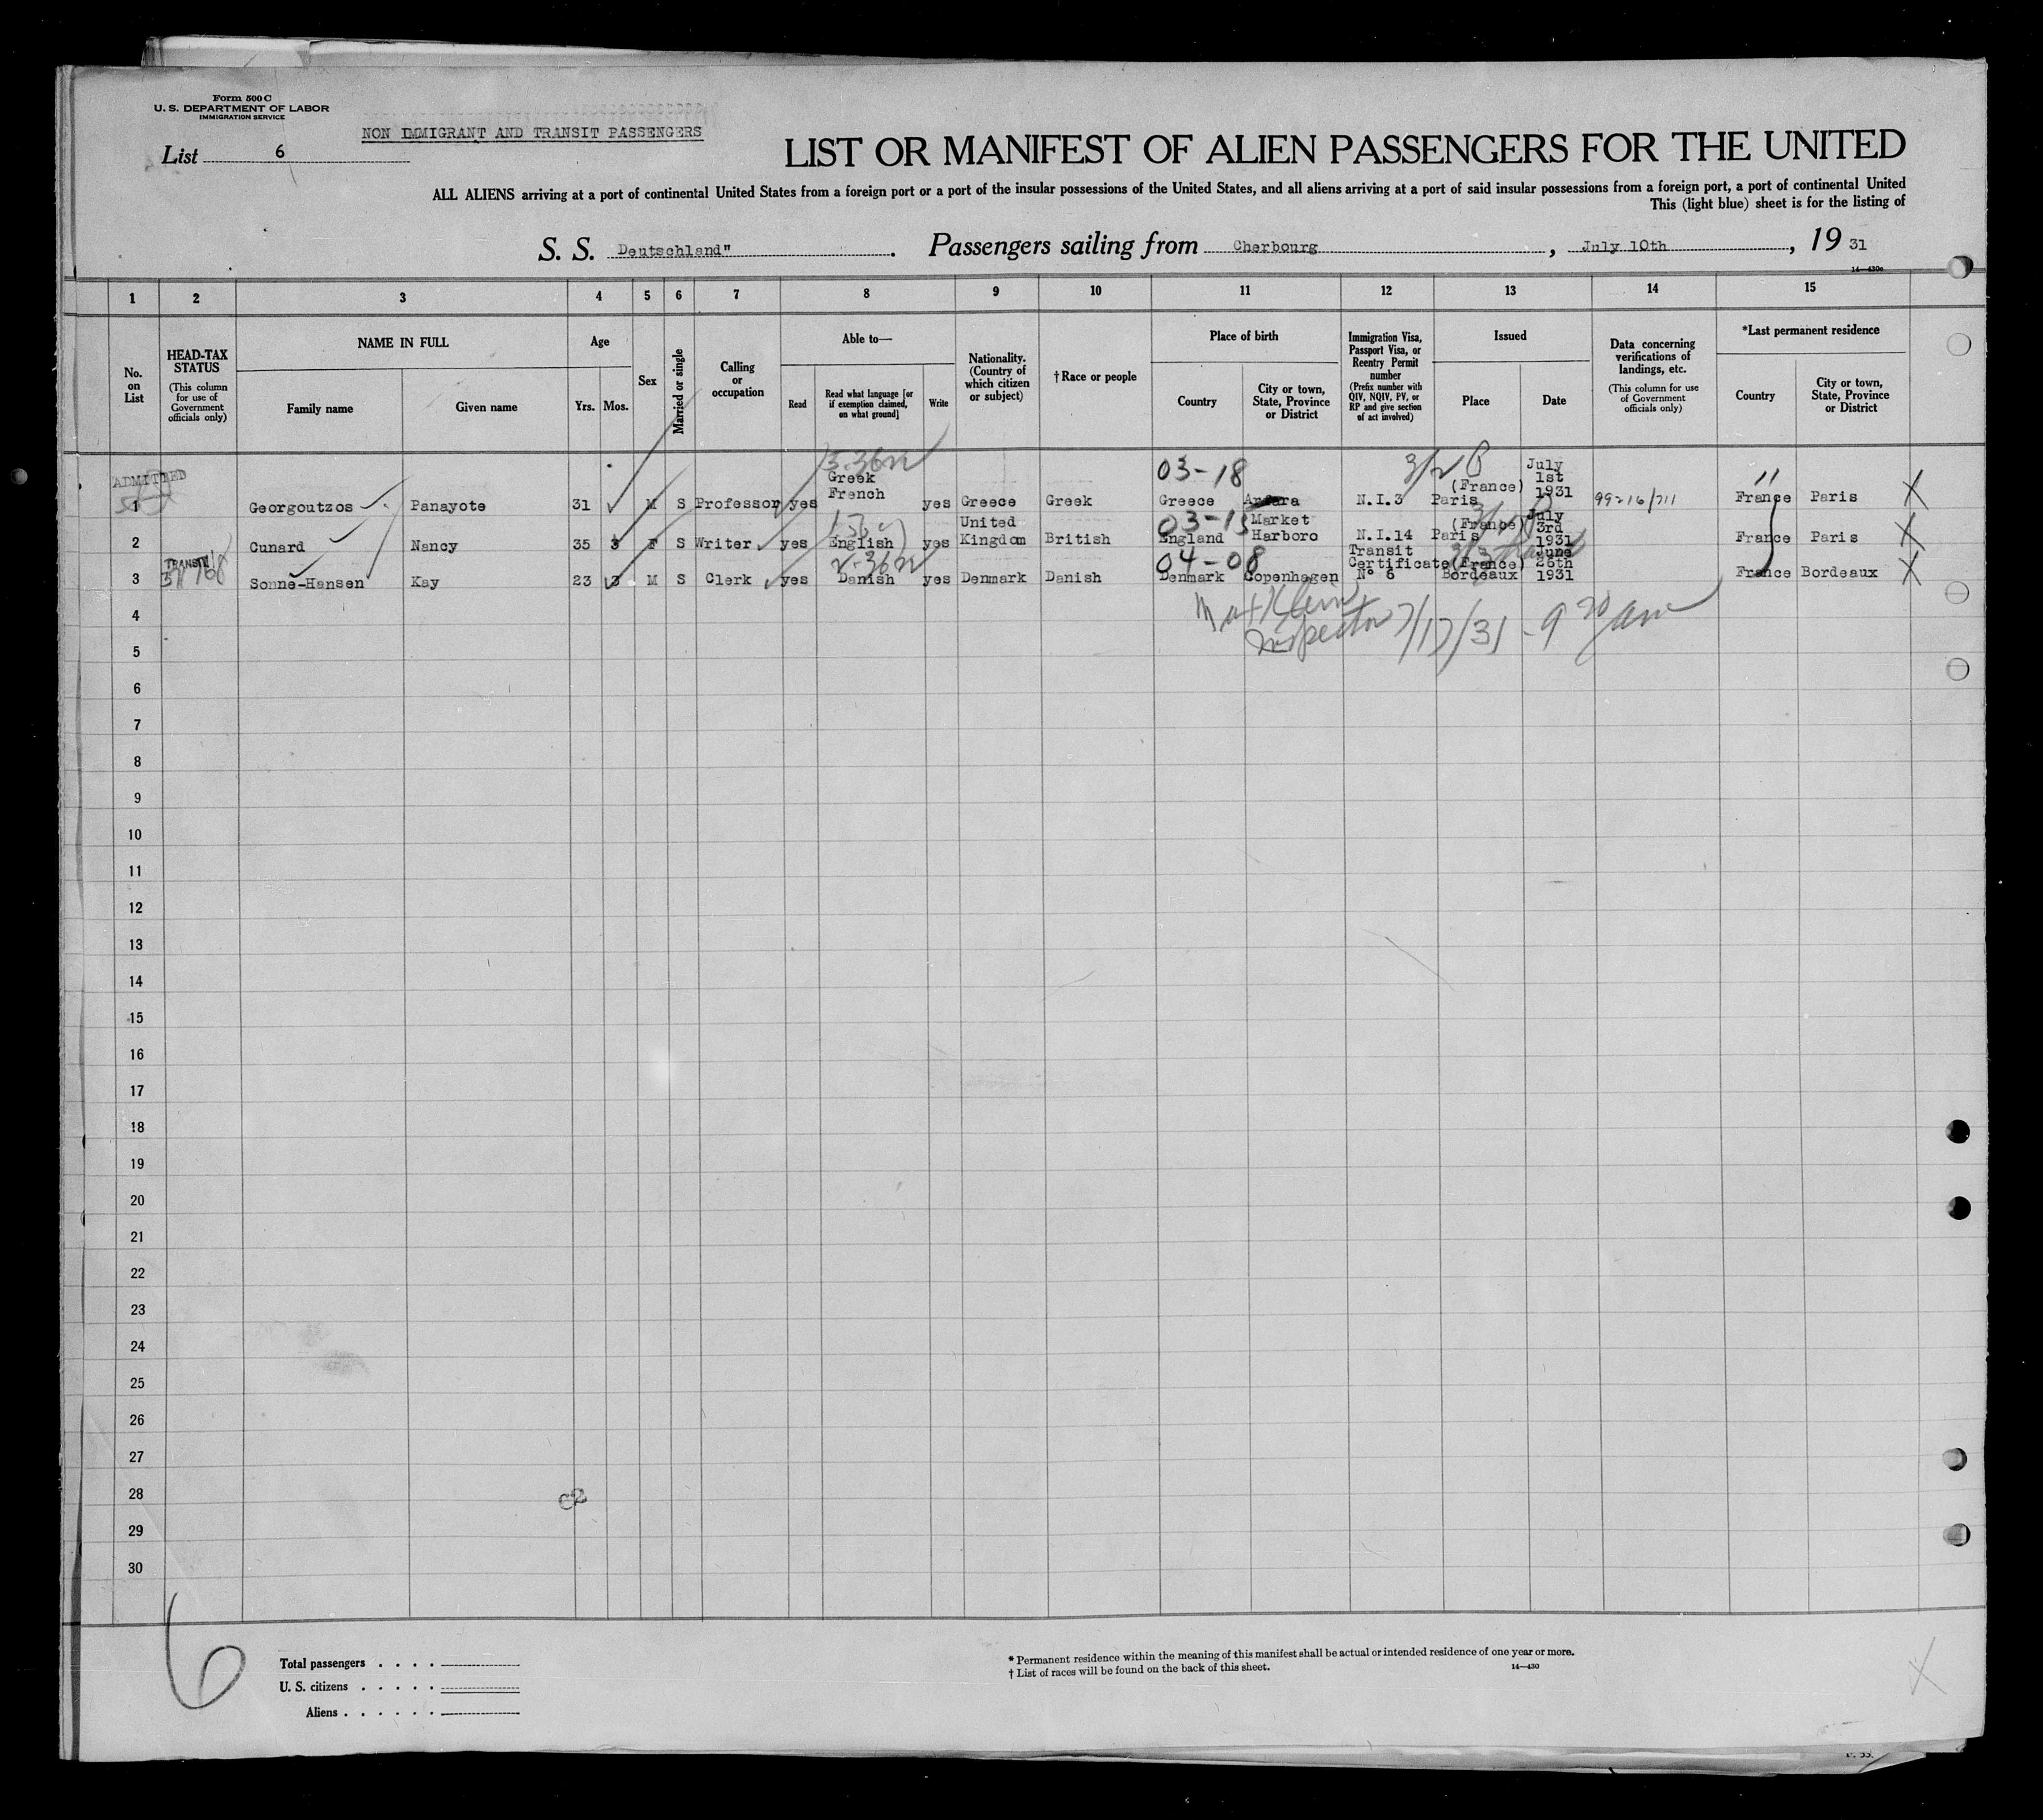 Form 500 C
U. S. DEPARTMENT OF LABOR
IMMIGRATION SERVICE
NON IMMIGRANT AND TRANSIT PASSENGERS
List 6
LIST OR MANIFEST OF ALIEN PASSENGERS FOR THE UNITED
ALL ALIENS arriving at a port of continental United States from a foreign port or a port of the insular possessions of the United States, and all aliens arriving at a port of said insular possessions from a foreign port, a port of continental United
This (light blue) sheet is for the listing of
S. S. Deutschland" . Passengers sailing from Cherbourg , July 10th , 19 31
14—430c
1 2 3 4 5 6 7 8 9 10 11 12 13 14 15
No. on List
HEAD-TAX STATUS
(This column for use of Government officials only)
NAME IN FULL
Family name
Given name
Age
Yrs.
Mos.
Sex
Married or single
Calling or occupation
Able to—
Read
Read what language [or if exemption claimed, on what ground]
Write
Nationality. (Country of which citizen or subject)
†Race or people
Place of birth
Country
City or town, State, Province or District
Immigration Visa, Passport Visa, or Reentry Permit number
(Prefix number with QIV, NQIV, PV, or RP and give section of act involved)
Issued
Place
Date
Data concerning verifications of landings, etc.
(This column for use of Government officials only)
*Last permanent residence
Country
City or town, State, Province or District
ADMITTED
3-36
03-18
3/2
1 Georgoutzos Panayote 31 M S Professor yes Greek French yes Greece Greek Greece N.I.3 Paris (France) July 1st 1931 99216/711 France Paris
03-15
2 Cunard Nancy 35 3 F S Writer yes English yes United Kingdom British England Market Harboro N.I.14 Paris (France) July 3rd 1931 France Paris
TRANSIT
2-36
04-08
3 Sonne-Hansen Kay 23 3 M S Clerk yes Danish yes Denmark Danish Denmark Copenhagen Transit Certificate No 6 Bordeaux (France) June 26th 1931 France Bordeaux
4
Inspector 7/17/31 - 9 30 am
5
6
7
8
9
10
11
12
13
14
15
16
17
18
19
20
21
22
23
24
25
26
27
28
29
30
6
Total passengers . . . .
U. S. citizens . . . . .
Aliens . . . . . .
* Permanent residence within the meaning of this manifest shall be actual or intended residence of one year or more.
† List of races will be found on the back of this sheet.
14—430